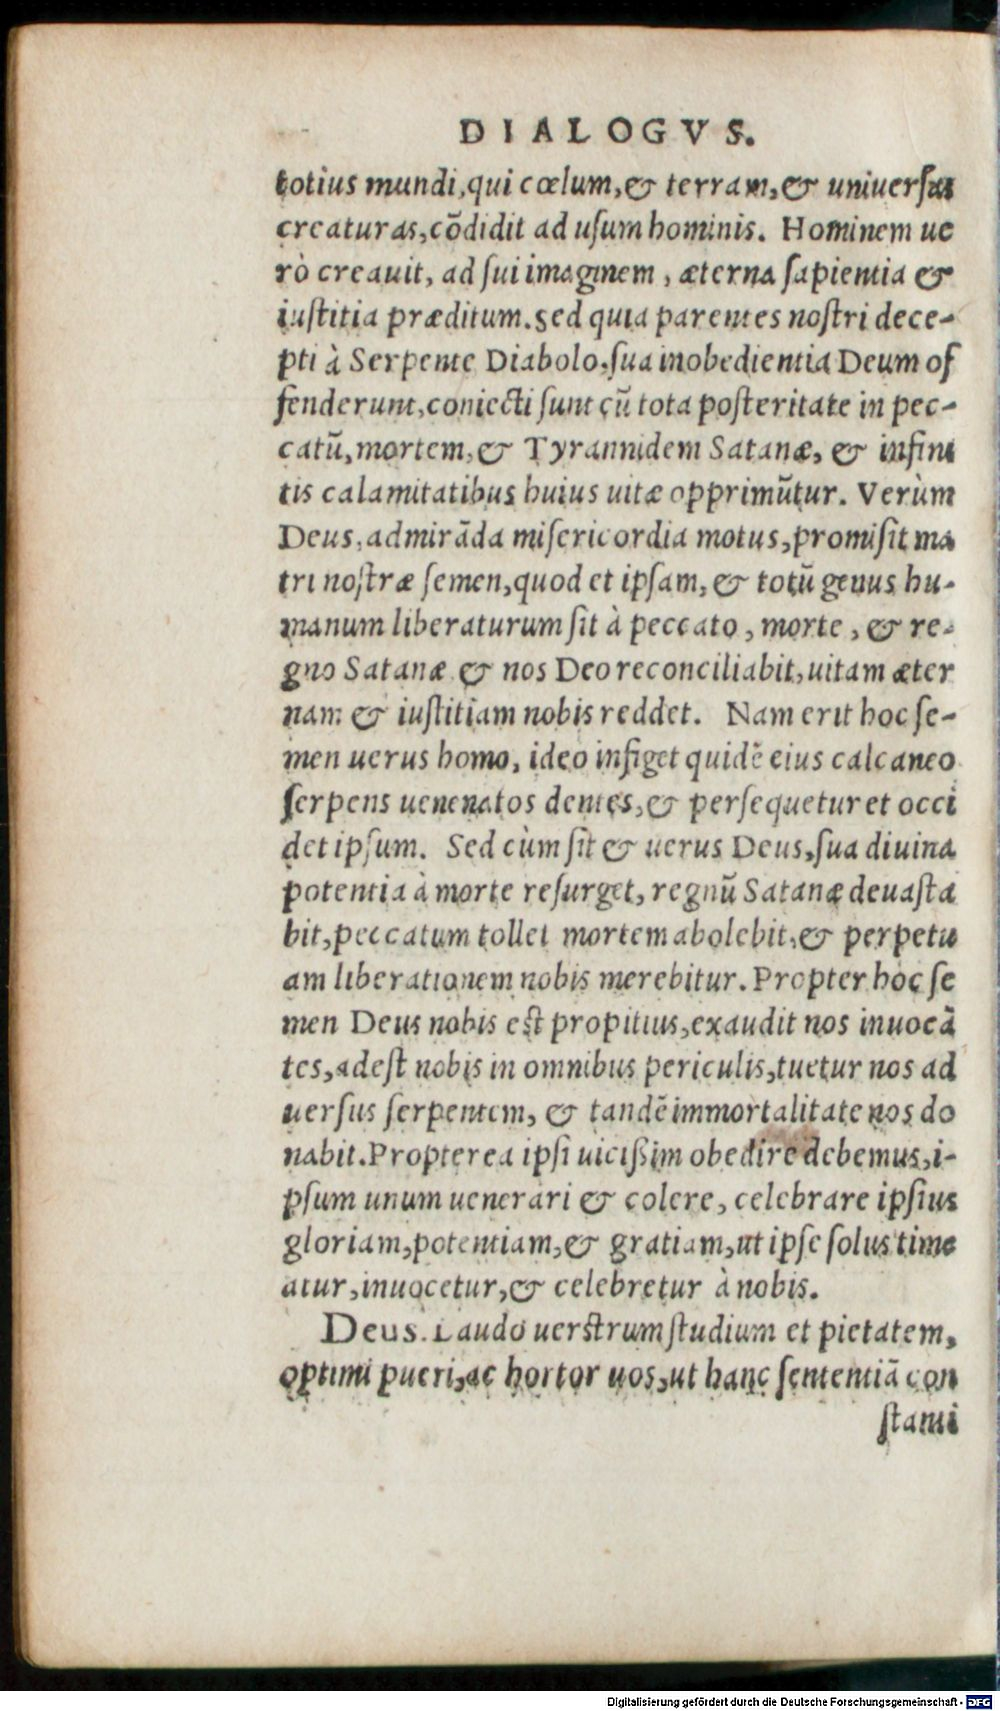 DIALOGVS.
totius mundi, qui cœlum, & terram, & uniuersas
creaturas, cõdidit ad usum hominis. Hominem ue
rò creauit, ad sui imaginem, æterna sapientia &
iustitia præditum. Sed quia parentes nostri dece-
pti à Serpente Diabolo, sua inobedientia Deum of
fenderunt, coniecti sunt cũ tota posteritate in pec-
catũ, mortem, & Tyrannidem Satanæ, & infini
tis calamitatibus huius uitæ opprimũtur. Verùm
Deus, admirãda misericordia motus, promisit ma
tri nostræ semen, quod et ipsam, & totũ genus hu-
manum liberaturum sit à peccato, morte, & re-
gno Satanæ & nos Deo reconciliabit, uitam æter
nam & iustitiam nobis reddet. Nam erit hoc se-
men uerus homo, ideo infiget quidẽ eius calcaneo
serpens uenenatos dentes, & persequetur et occi
det ipsum. Sed cùm sit & uerus Deus, sua diuina
potentia à morte resurget, regnũ Satanæ deuasta
bit, peccatum tollet mortem abolebit, & perpetu
am liberationem nobis merebitur. Propter hoc se
men Deus nobis est propitius, exaudit nos inuocã
tes, adest nobis in omnibus periculis, tuetur nos ad
uersus serpentem, & tandẽ immortalitate nos do
nabit. Propterea ipsi uicißim obedire debemus, i-
psum unum uenerari & colere, celebrare ipsius
gloriam, potentiam, & gratiam, ut ipse solus time
atur, inuocetur, & celebretur à nobis.
Deus. Laudo uerstrum studium et pietatem,
optimi pueri, ac hortor uos, ut hanc sententiã con
stanti
Digitalisierung gefördert durch die Deutsche Forschungsgemeinschaft - DFG